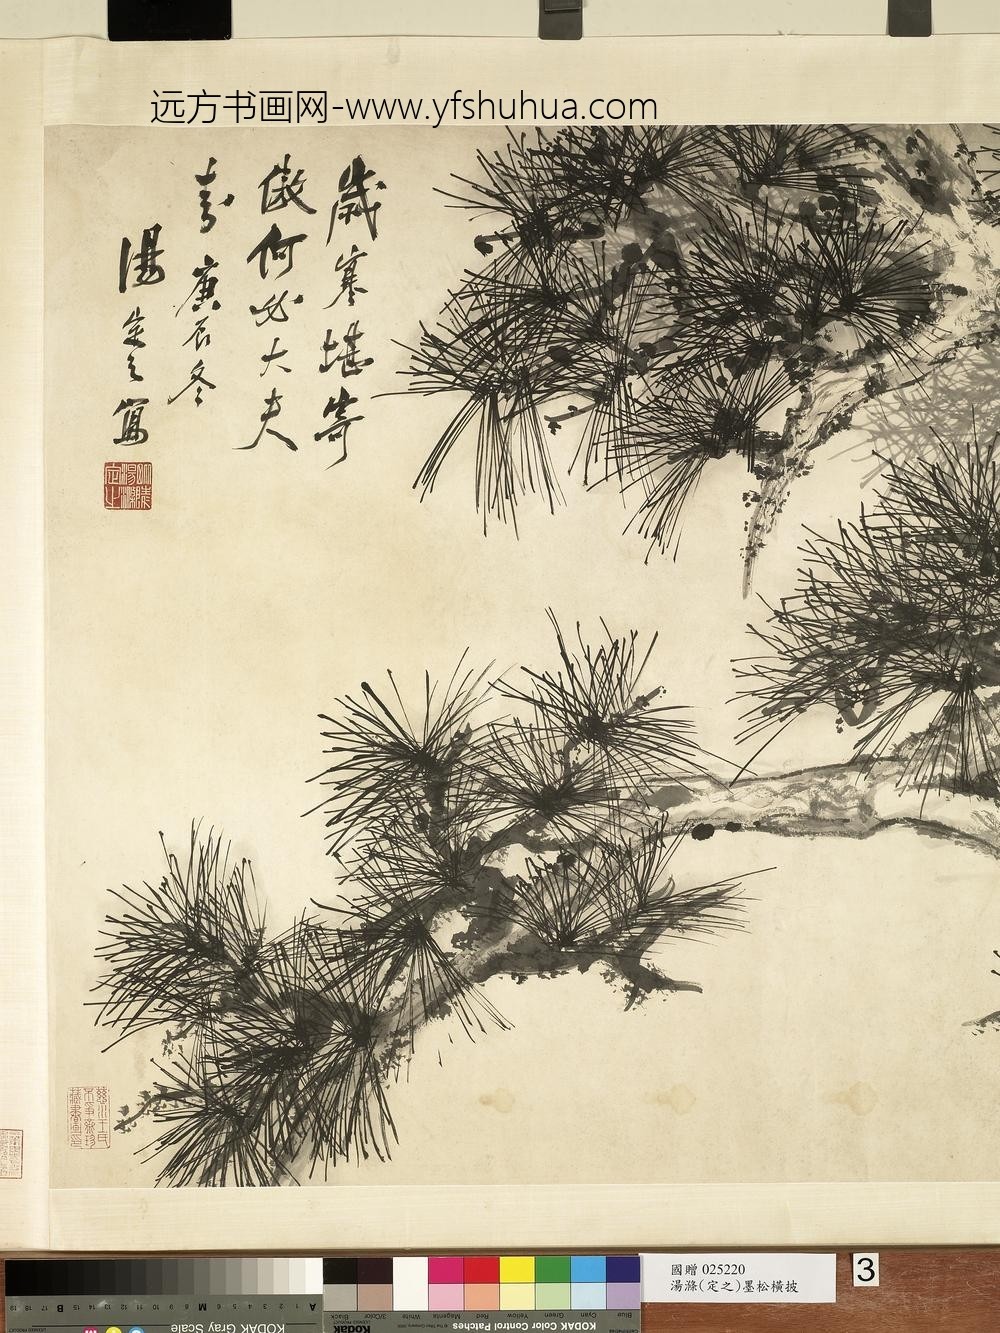 远方书画网-www.yfshuhua.com
歲寒堪寄
傲何必大夫
秦庚辰冬
湯定之寫
國贈 025220
湯滌(定之)墨松橫披
3
KODAK Gray Scale
KODAK Color Control Patches
Blue Cyan Green Yellow Red Magenta White 3/Color Black